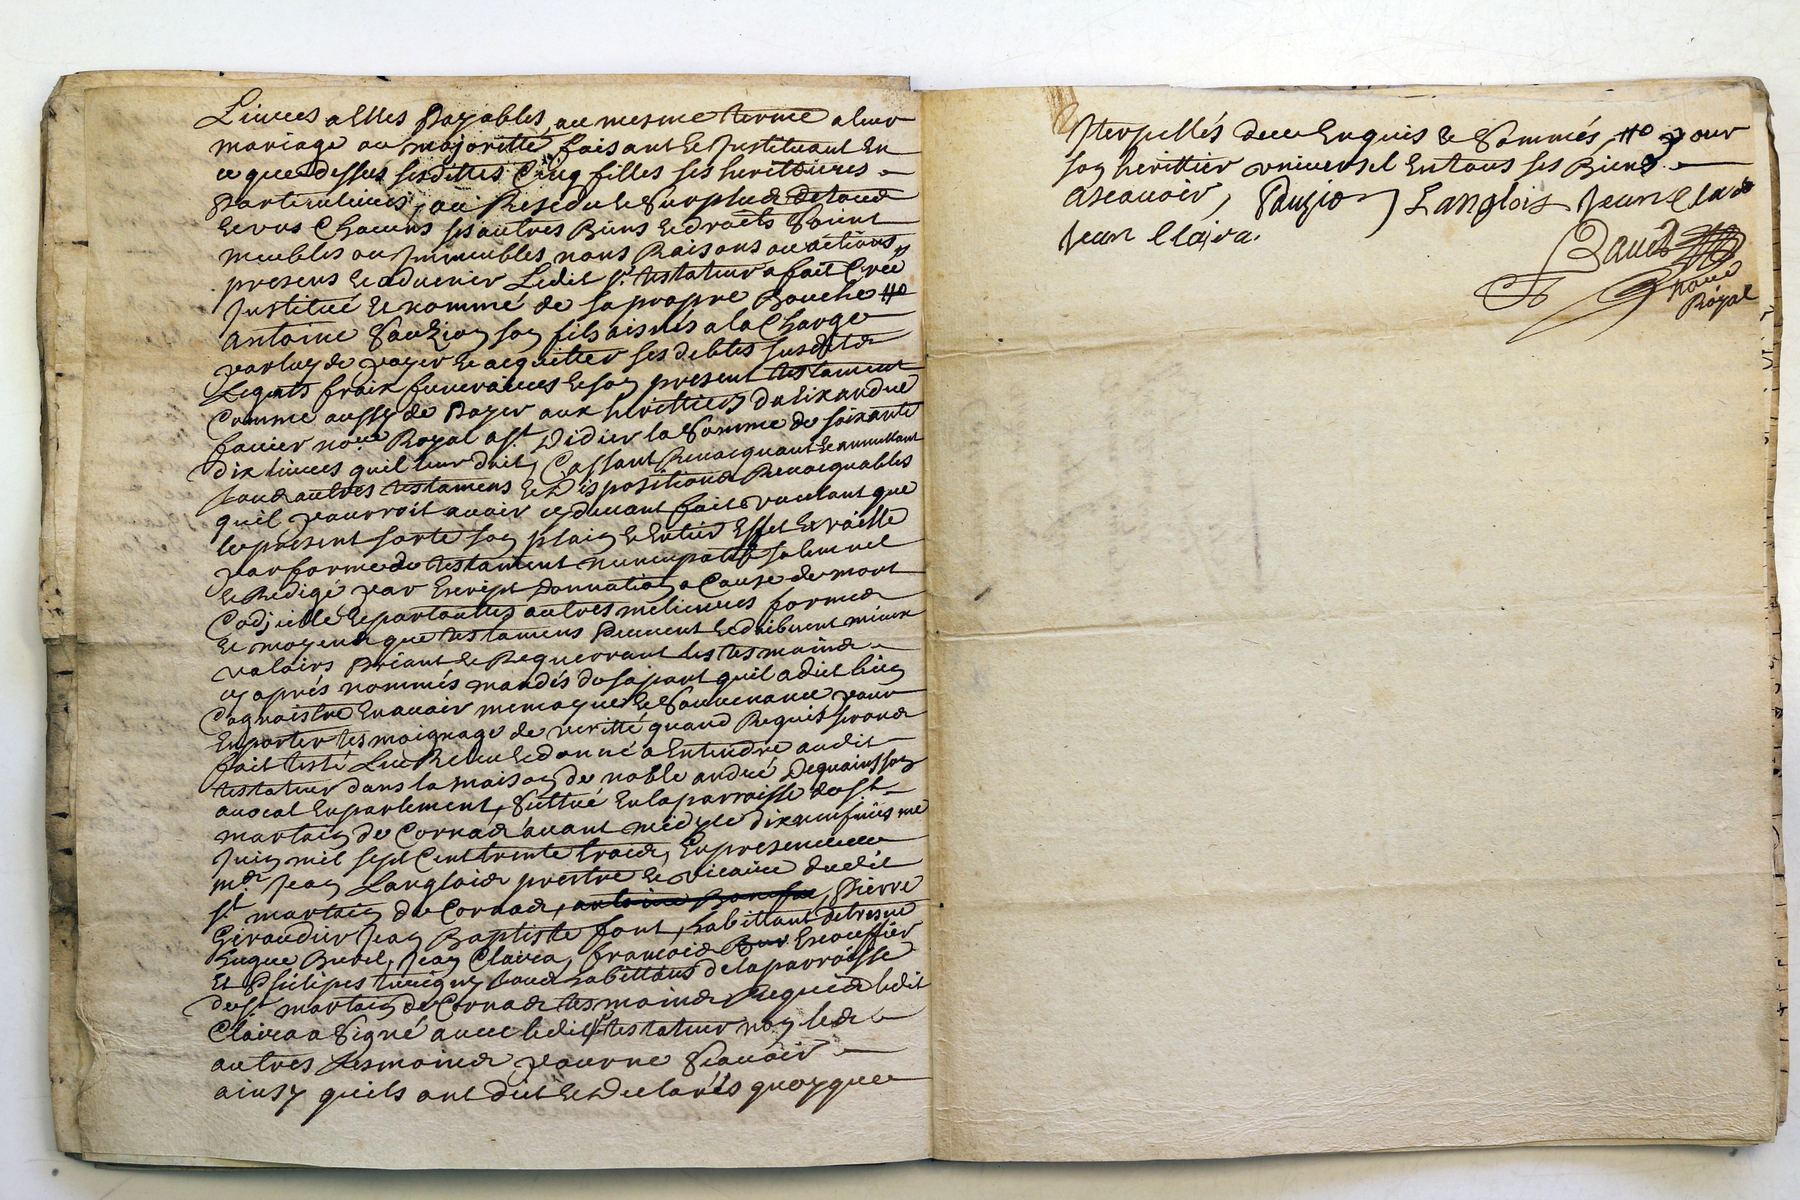 Livres a Elles payables au mesme terme a leur
mariage ou majoritté faisant et Instituant En
ce que dessus sesdittes Cinq filles ses herittieres
particulieres, au Residu et Surplus de tous
et vns Chacuns ses autres Biens et droits Soient
meubles ou Immeubles noms Raisons ou actions
presens et aduenir Ledit sr. testateur a fait Creé
Institué et nommé de sa propre Bouche
antoine Sauzion son fils aisnés a la Charge
par luy de payer et acquitter ses debtes susdits
Legats fraix funeraires et son present testament
Comme aussy de payer aux herittiers d'alixandre
fauier nore. Royal a st. Didier la somme de soixante
dix liures quil leur doit, Cassant Reuocquant et annullant
tous autres testamens et Dispositions Reuocquables
quil pourroit auoir cy deuant fait voulant que
le present sorte son plain et Entier Effet Et vaille
par forme de testament nuncupatif solemnel
et Redigé par Escript donnation a Cause de mort
Codicille et par toutes autres melieures formes
et moyens que testamens peuuent et doibuent mieux
valoirs priant et Requerrant les tesmoins
cy aprés nommés mandés de sa part quil a dit bien
Cognoistre En auoir memoyre et Souuenance pour
En porter tesmoignage de veritté quand Requis seront
fait testé Leu Releu et donné a Entendre audit
testateur dans la maison de noble andré
auocat En parlement, Sittué En la parroisse de st.
martin de Cornas auant midy le dix neufuiesme
Juin mil sept Cent trente trois, En presence de
mr. Jean Langlois prestre et vicaire dudit
st. martin de Cornas, Pierre
Giraudier Jean Baptiste font, habittant de
hugue Buuel, Jean Claira, francois
Et Philipes tous habittans de la parroisse
de st. martin de Cornas tesmoins Requis ledit
Claira a Signé auec ledit sr. testateur non les
autres tesmoins pour ne Scauoir
ainsy quils ont dit et declarés quoyque
Iterpellés deue Enquis et Sommés, pour
son herittier vniuersel En tous ses Biens
ascauoir, Sauzion Langlois Jean Claira
Jean Claira.
Dauid
nore
Royal